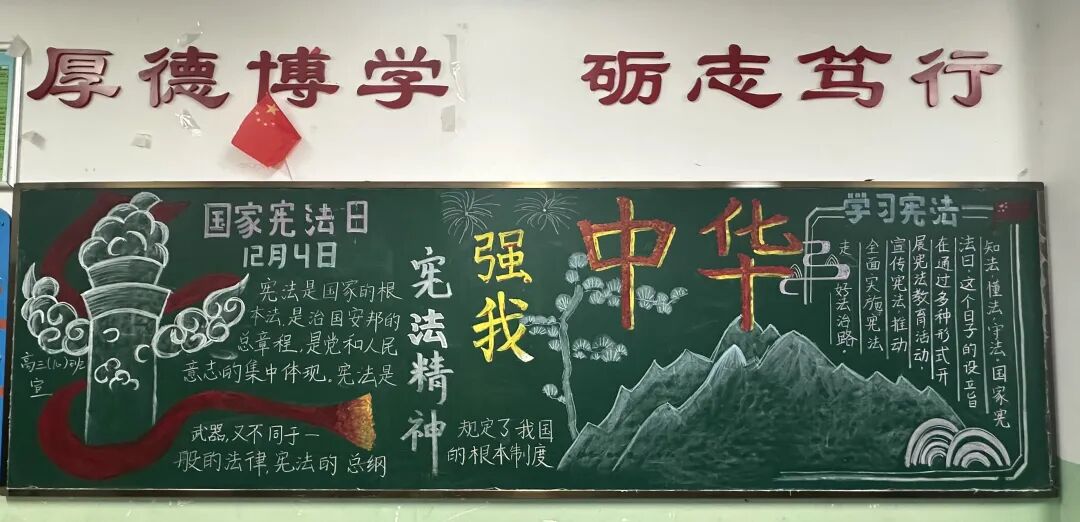 厚德博学 砺志笃行
国家宪法日
12月4日
宪法是国家的根
本法,是治国安邦的
总章程,是党和人民
意志的集中体现。宪法是
武器,又不同于一
般的法律,宪法的总纲
规定了我国
的根本制度
高三(10)班
宣
宪法精神
强我
中华
学习宪法
知法、懂法、守法。国家宪
法日,这个日子的设立旨
在通过多种形式开
展宪法教育活动,
宣传宪法,推动
全面实施宪法
走好法治路.